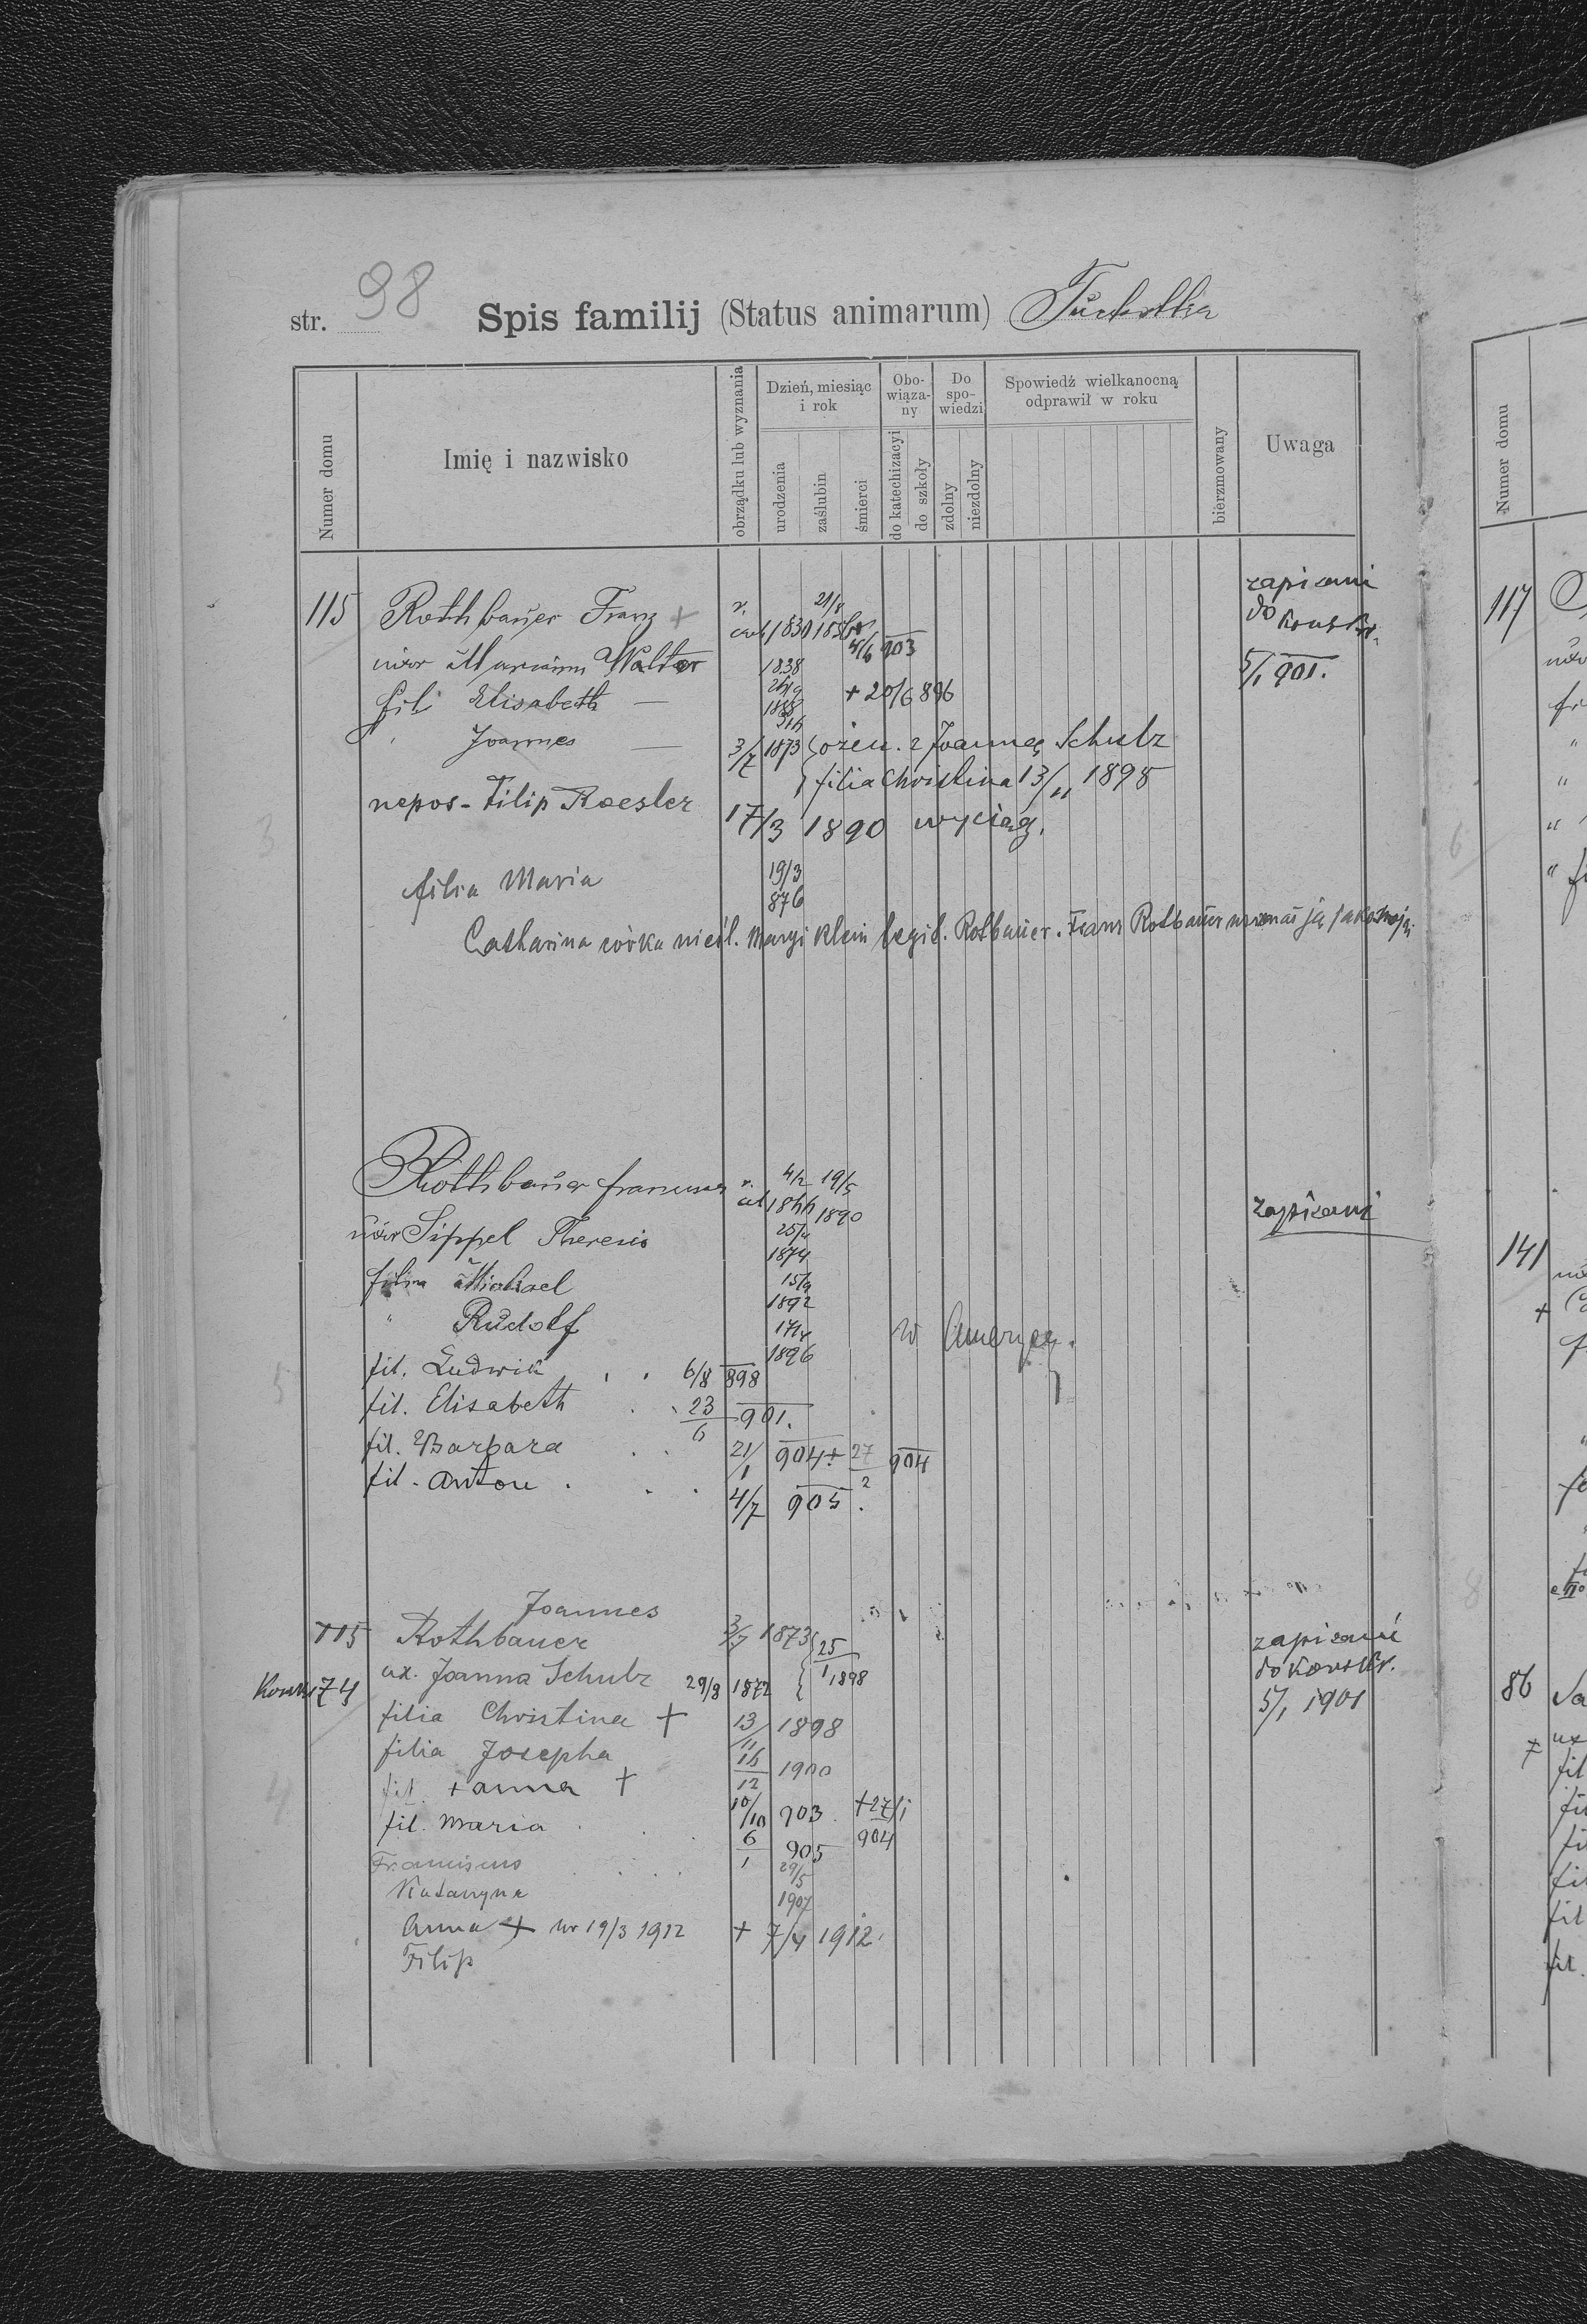 str. 98 Spis familij (Status animarum)
Numer domu
Imię i nazwisko
obrządku lub wyznania
Dzień, miesiąc i rok
urodzenia
zaślubin
śmierci
Obo-wiąza-ny
do katechizacyi
do szkoły
Do spo-wiedzi
zdolny
niezdolny
Spowiedź wielkanocną odprawił w roku
bierzmowany
Uwaga
115 Rothbauer Franz + 21/8 1830 4/6 903
zapisani
do Konskr.
5/1 901.
Walter 1838
fil Elisabeth — 1868 + 20/6 896
" Joannes — 3/7 1873 { ożen. z Joanną Schulz
} filia Christina 13/11 1898
nepos - Filip Roesler 17/3 1890 wyciąg.
filia Maria 19/3 876
Catharina córka nieśl. Maryi Klein legit. Rotbauer. Franz Rotbauer
Rothbauer 4/2 1844 19/5 1890
zapisani
Sippel 25/4 1874
Michael 15/9 1892
" Rudolf 17/4 1896 w Ameryce.
fil. Ludwik . . 6/8 898
fil. Elisabeth . . 23/6 901.
fil. Barbara . . 21/1 904 + 27/2 904
fil. Anton . . . 4/7 905.
Joannes
115 Rothbauer 3/7 1873 { 25/1 1898
zapisani
do Konskr.
5/1 1901
Konskr 74 ux. Joanna Schulz 29/8 1872
filia Christina + 13/11 1898
filia Josepha 16/12 1900
fil. + Anna + 10/10 903 + 27/1 904
fil. Maria . . . 6/1 905
Franciscus . . . . 29/5 1907
Katarzyna
Anna + ur 19/3 1912 + 7/4 1912.
Filip
Numer domu
117
141
86